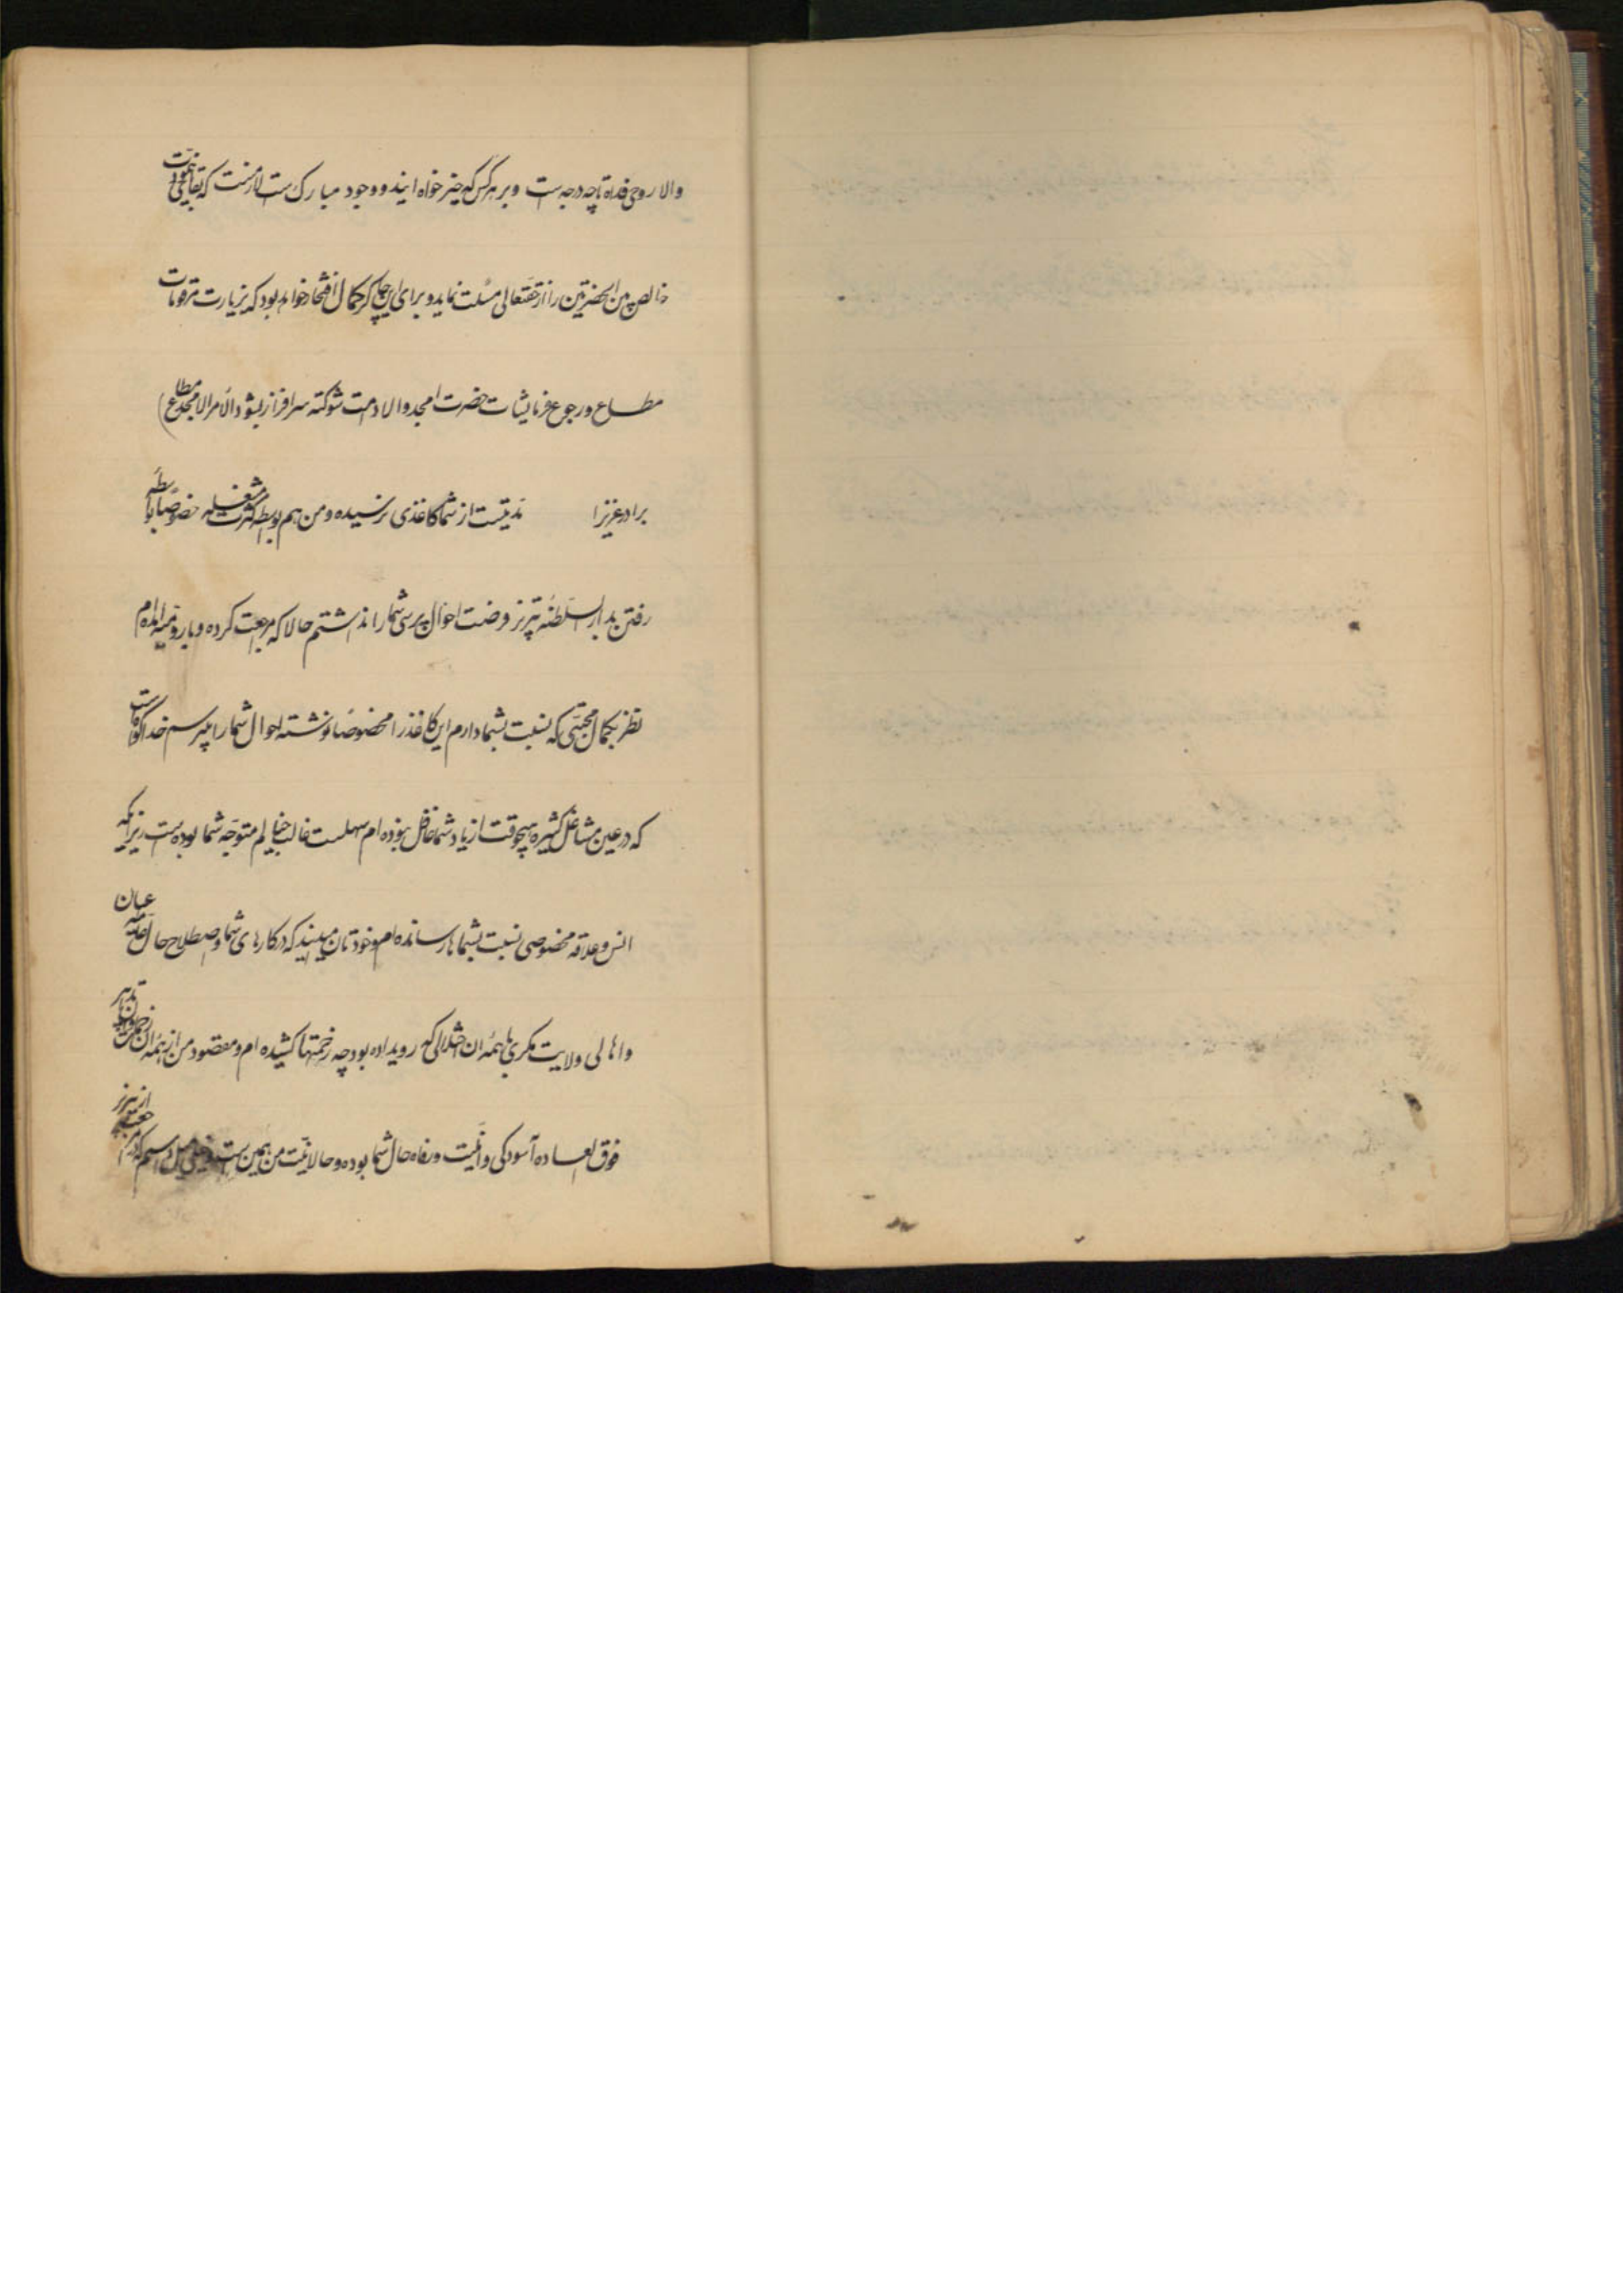 والا روحی فداه تا چه درجه است و بر هر کس که خیر خواه ایند و وجود مبارک است لازمست که بقای مودت
خالص بین الحضرتین را از حقتعالی مسئلت نماید و برای این چاکر کمال افتخار خواهد بود که بزیارت مرقومات
مطاع و رجوع فرمایشات حضرت امجد والا دامت شوکته سرافراز بشود والامر الامجد مطاع)
برادر عزیزا مدتیست از شما کاغذی نرسیده و من هم بواسطه کثرت مشغله خصوصاً بواسطه
رفتن بدار السلطنه تبریز فرصت احوال پرسی شما را نداشتم حالا که مراجعت کرده و بارومیه امده‌ام
نظر بکمال محبتی که نسبت بشما دارم این کاغذ را مخصوصاً نوشته احوال شما را میپرسم خدا گواه است
که در عین مشاغل کثیره هیچوقت از یاد شما غافل نبوده‌ام سهلست غالب خیالم متوجه شما بوده است زیرا که
انس و علاقه مخصوصی نسبت بشماها رسانده‌ام و خودتان میدانید که در کارهای شما و اصطلاح حال عامه
و اهالی ولایت مکری با همه ان اختلالی که رویداده بود چه زحمتها کشیده‌ام و مقصود من از همه ان زحمات
فوق العاده آسودگی و امنیت و رفاه حال شما بوده و حالا نیت من همین است